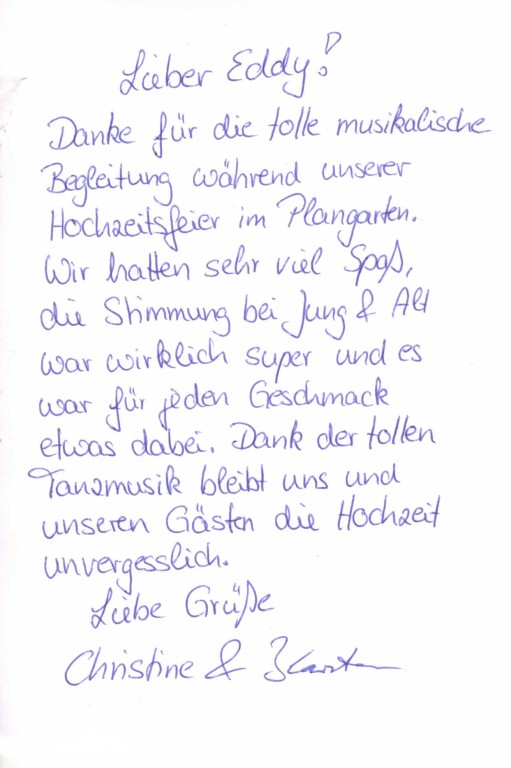 Lieber Eddy!
Danke für die tolle musikalische
Begleitung während unserer
Hochzeitsfeier im Plangarten.
Wir hatten sehr viel Spaß,
die Stimmung bei Jung & Alt
war wirklich super und es
war für jeden Geschmack
etwas dabei. Dank der tollen
Tanzmusik bleibt uns und
unseren Gästen die Hochzeit
unvergesslich.
Liebe Grüße
Christine &